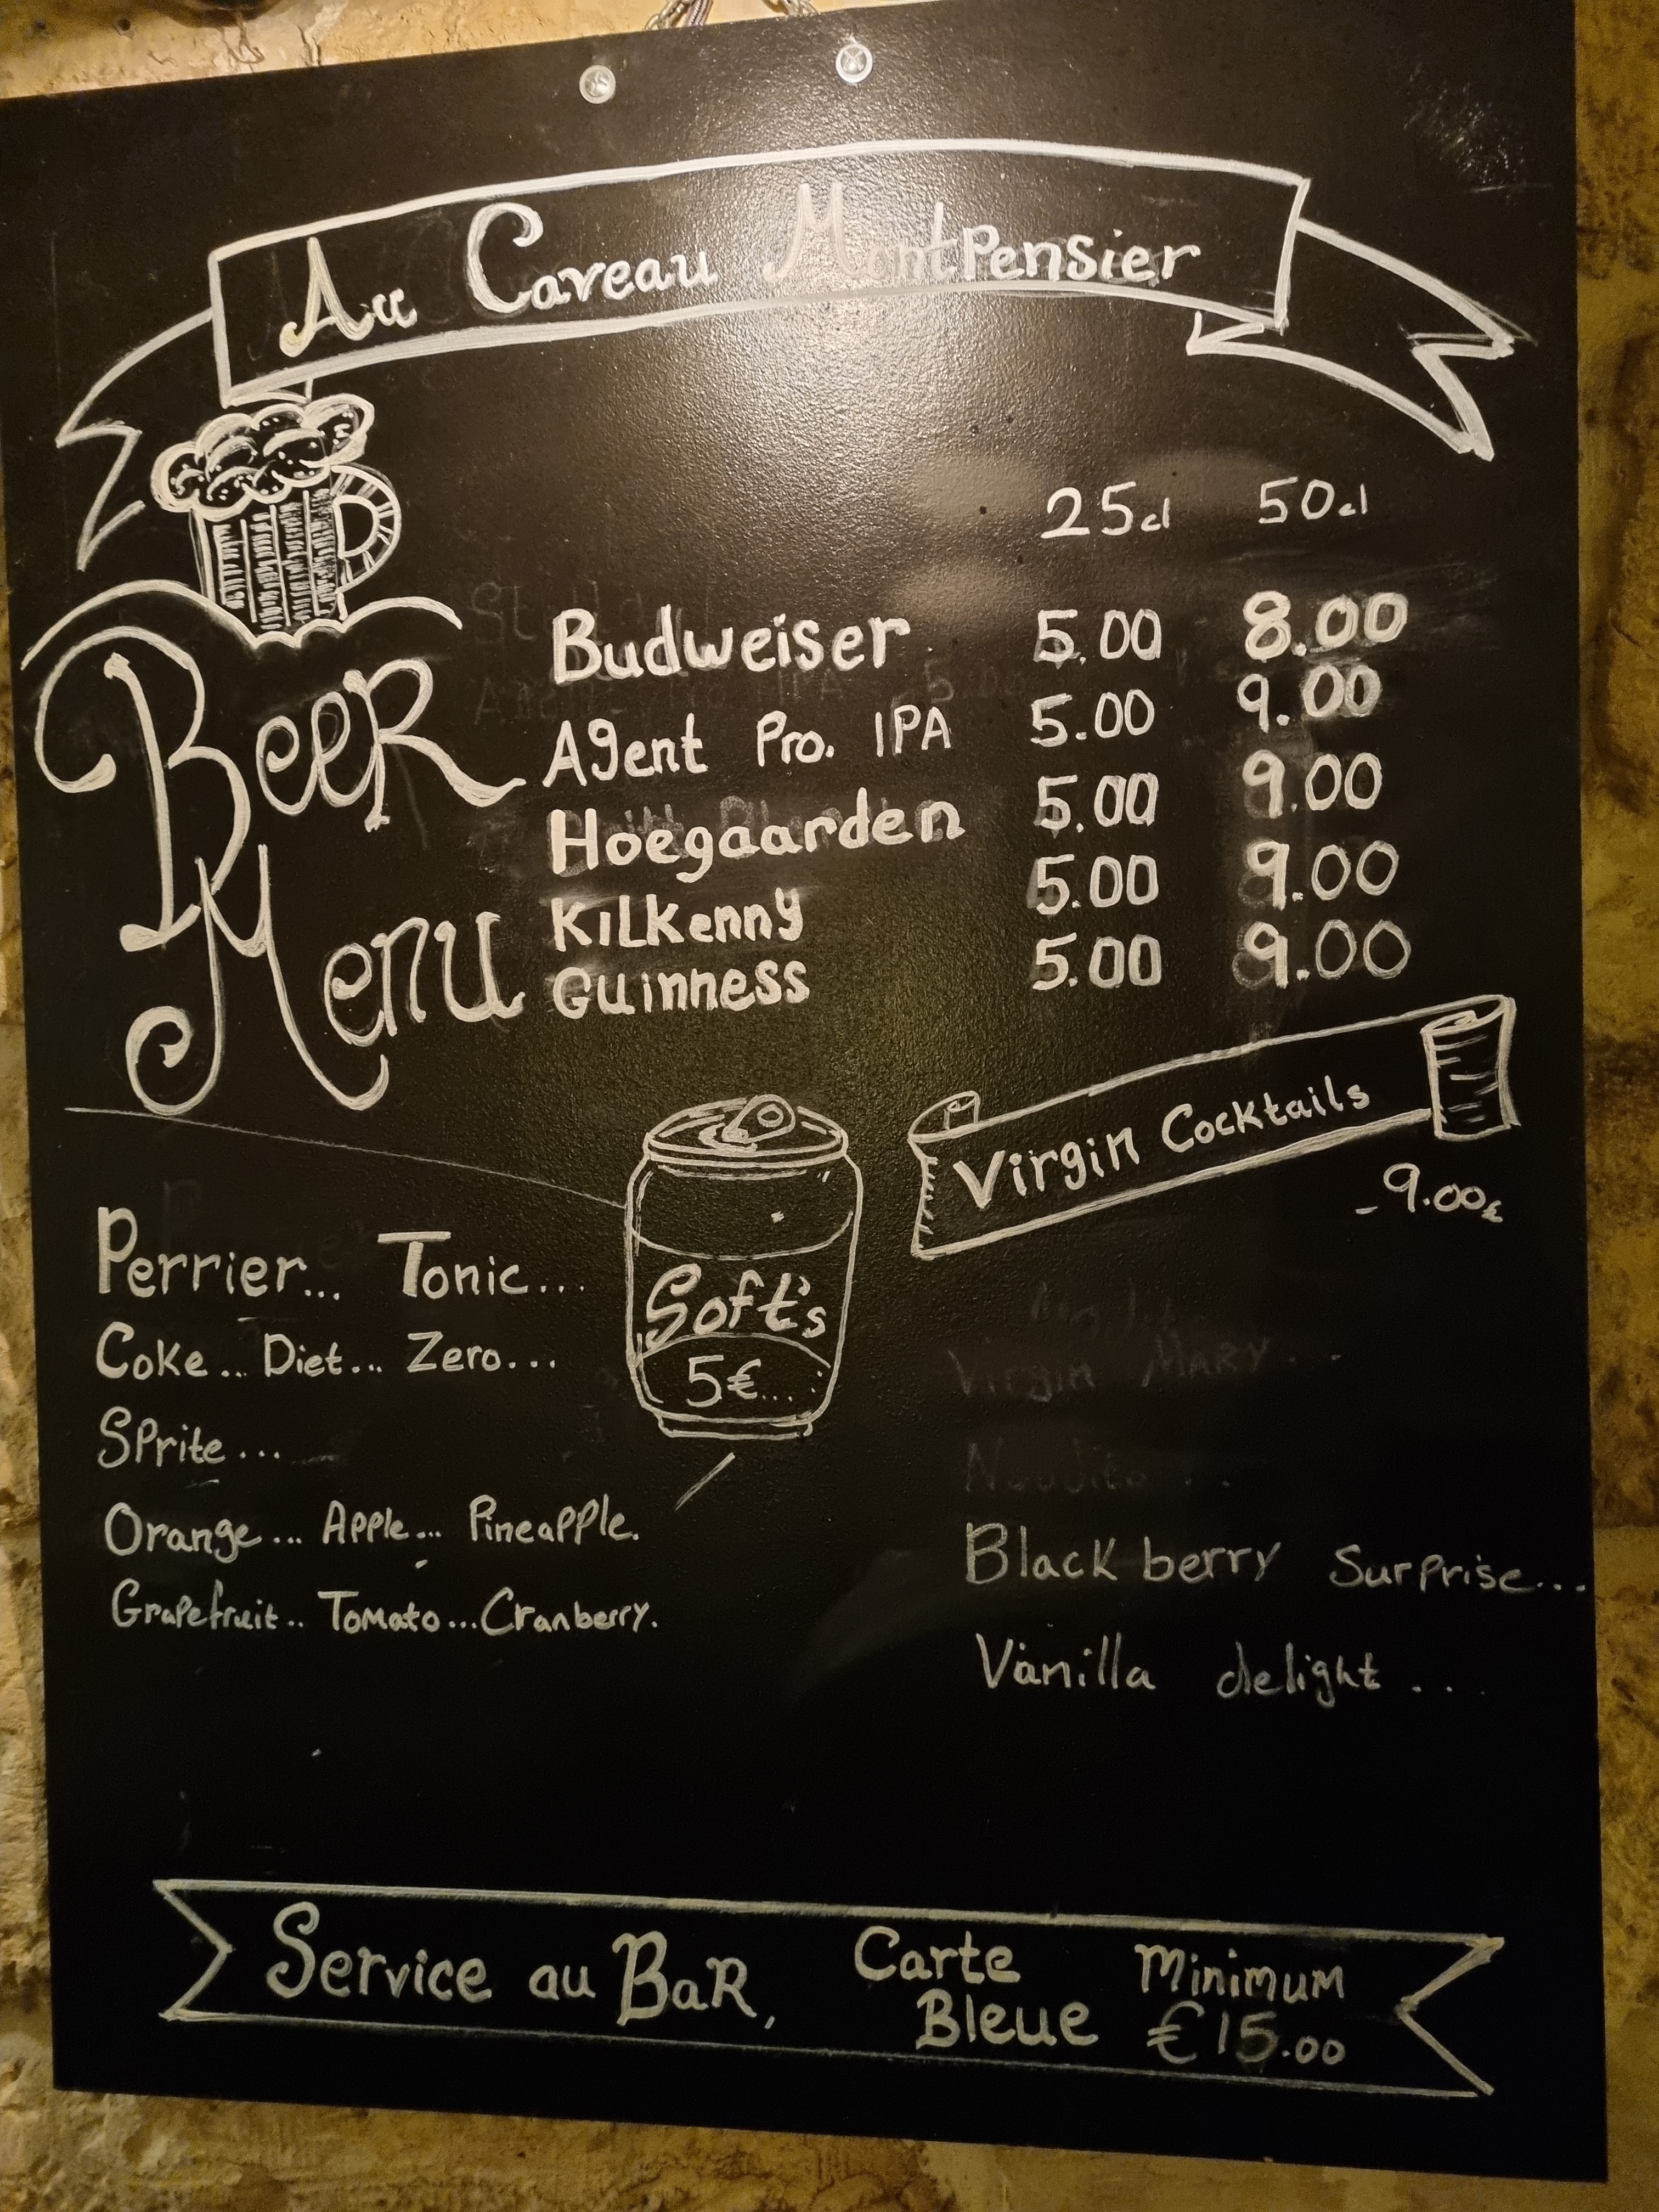 Au Caveau Montpensier
25cl 50cl
Beer Menu
Budweiser 5.00 8.00
Agent Pro. IPA 5.00 9.00
Hoegaarden 5.00 9.00
Kilkenny 5.00 9.00
Guinness 5.00 9.00
Soft's
5€...
Perrier... Tonic...
Coke... Diet... Zero...
Sprite...
Orange... Apple... Pineapple.
Grapefruit.. Tomato... Cranberry.
Virgin Cocktails
- 9.00€
Virgin Mary...
Blackberry Surprise...
Vanilla delight...
Service au Bar, Carte Bleue Minimum €15.00